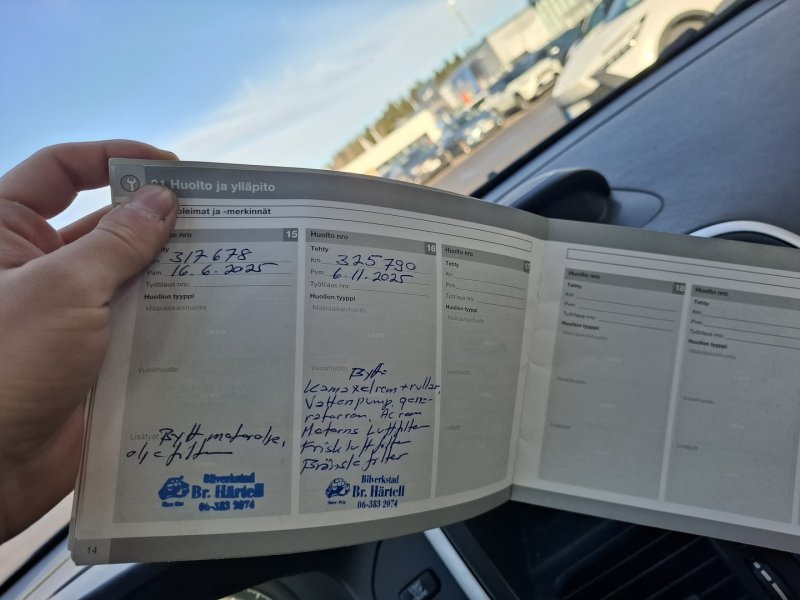 Huolto ja ylläpito
oleimat ja -merkinnät
15
Tehty
Km 317678
Pvm 16.6.2025
Työtilaus nro:
Huollon tyyppi
Määräaikaishuolto
Vuosihuolto
Lisätyöt Bytt motorolje,
oljefilter
Bilverkstad
Br. Härtell
06-383 2074
14
Huolto nro 16
Tehty
Km 325790
Pvm 6.11.2025
Työtilaus nro:
Huollon tyyppi
Määräaikaishuolto
Vuosihuolto
Bytt
Kamaxelrem + rullar,
Vattenpump, gene-
ratorrem. AC rem
Motorns Luftfilter
Frisk luftfilter
Bränsle filter
Bilverkstad
Br. Härtell
06-383 2074
Huolto nro
Tehty
Km
Pvm
Työtilaus nro:
Huollon tyyppi
Määräaikaishuolto
Vuosihuolto
Lisätyöt
Huolto nro 18
Tehty
Km
Pvm
Työtilaus nro:
Huollon tyyppi
Määräaikaishuolto
Vuosihuolto
Lisätyöt
Huolto nro
Tehty
Km
Pvm
Työtilaus nro:
Huollon tyyppi
Määräaikaishuolto
Vuosihuolto
Lisätyöt